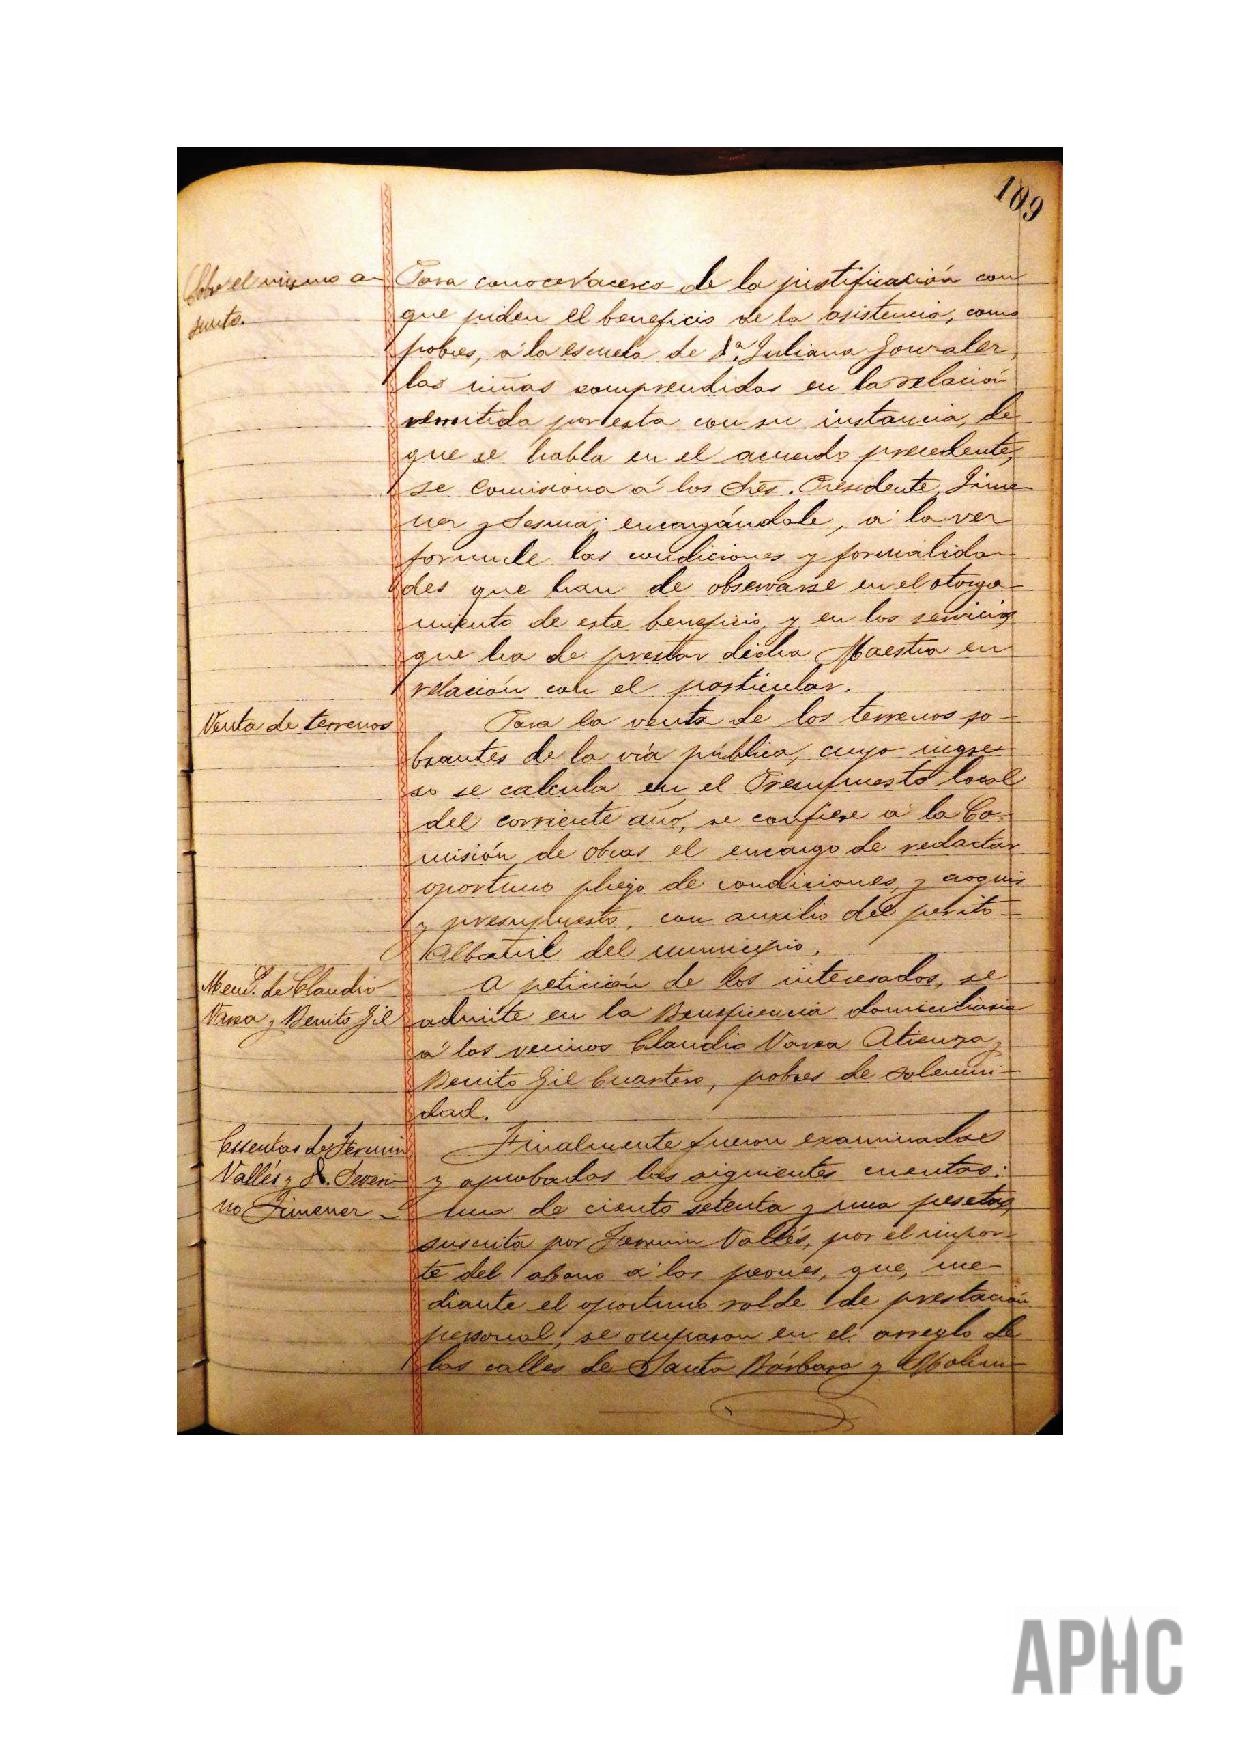 109
Sobre el mismo a-
sunto.
Para conocer acerca de la justificación con
que piden el beneficio de la asistencia, como
pobres, a la escuela de D.ª Juliana Gonzalez,
las niñas comprendidas en la relación
remitida por esta con su instancia, de
que se habla en el acuerdo precedente,
se comisiona á los Sres. Presidente, Jime-
nez y Sesma; encargándole, a la vez
formule las condiciones y formalida-
des que han de observarse en el otorga-
miento de este beneficio, y en los servicios
que ha de prestar dicha Maestra en
relación con el particular.
Venta de terrenos
Para la venta de los terrenos so-
brantes de la vía pública, cuyo ingre-
so se calcula en el Presupuesto local
del corriente año, se confiere a la Co-
misión de Obras el encargo de redactar
oportuno pliego de condiciones, y croquis
y presupuesto, con auxilio del perito
Albañil del municipio.
de Claudio
Varea y Benito Gil
A petición de los interesados, se
admite en la Beneficencia domiciliaria
á los vecinos Claudio Varea Atienza y
Benito Gil Cuartero, pobres de solemni-
dad.
Cuentas de Fermin
Vallés y D. Severi-
no Jimenez
Finalmente fueron examinadas
y aprobadas las siguientes cuentas:
Una de ciento setenta y una pesetas,
suscrita por Fermin Vallés, por el impor-
te del abono a los peones, que, me-
diante el oportuno rolde de prestación
personal, se ocuparon en el arreglo de
las calles de Santa Bárbara y Molin-
APHC